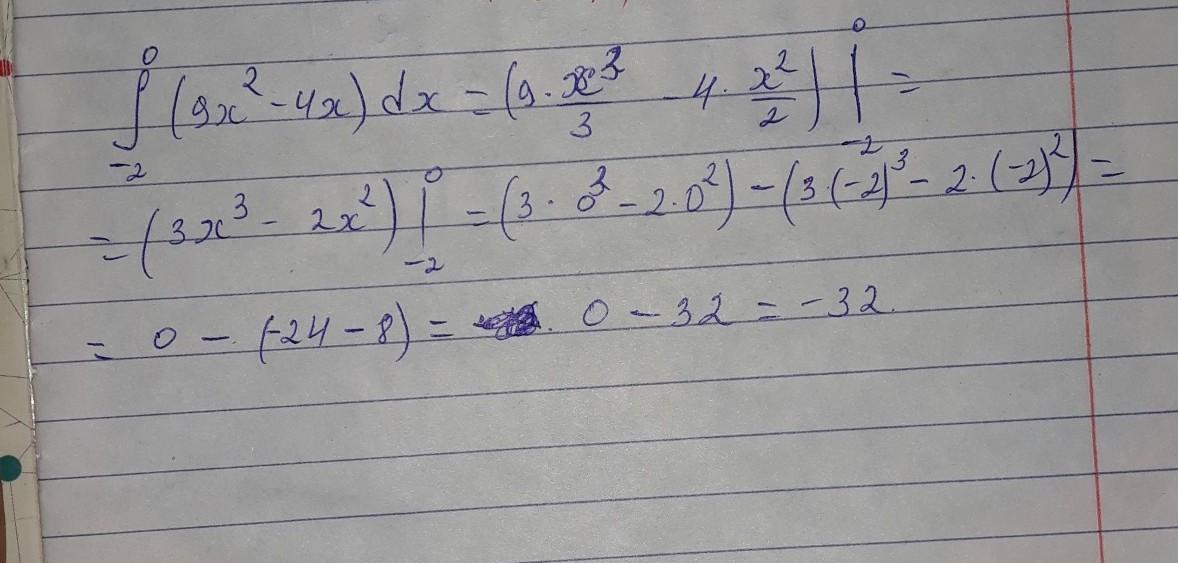 ∫₋₂⁰ (9x² - 4x) dx = (9 · x³/3 - 4 · x²/2) |₋₂⁰ =
= (3x³ - 2x²) |₋₂⁰ = (3 · 0³ - 2 · 0²) - (3 · (-2)³ - 2 · (-2)²) =
= 0 - (-24 - 8) = 0 - 32 = -32.